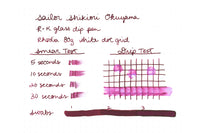 Sailor Shikiori Okuyama
R-K glass dip pen
Rhodia 80g white dot grid
Smear Test Drip Test
5 seconds
10 seconds
20 seconds
30 seconds
Swabs 1 2 3